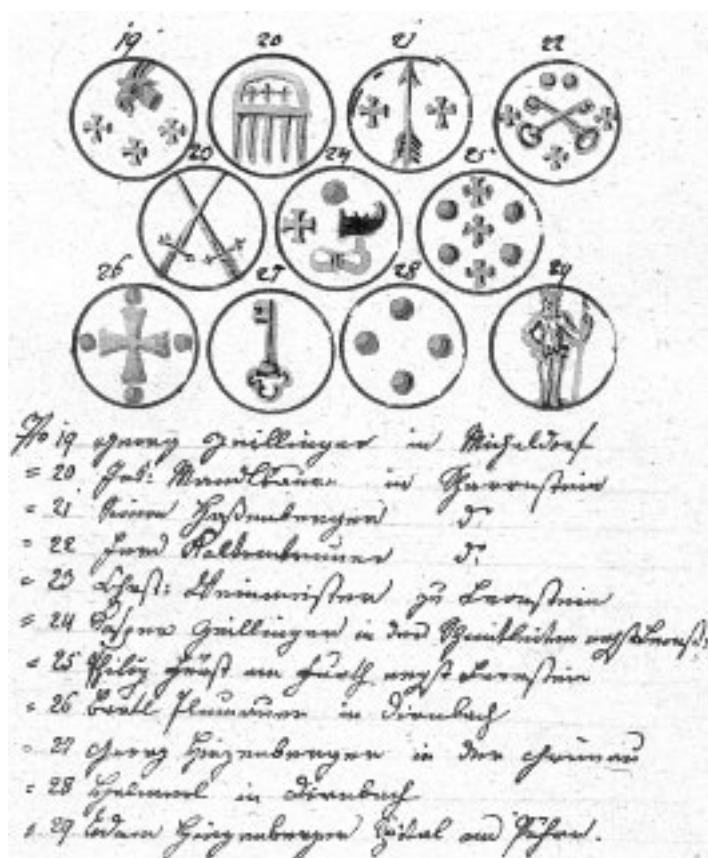 19 20 21 22
23 24 25
26 27 28 29
No 19 Georg Zeillinger in Micheldorf
= 20 Jos: Mandlbauer in Scharnstein
= 21 Simon Haßenberger do
= 22 Ferd Kaltenbrunner do
= 23 Christ: Weinmeister zu Leonstein
= 24 Caspar Zeillinger in der Schmidleithen
= 25 Philip Fürst am Furth nächst Leonstein
= 26 Bartl in Dirnbach
= 27 Georg Hinzenberger in der Grünau
= 28 in Dirnbach
= 29 Adam Spital am Pyhrn.